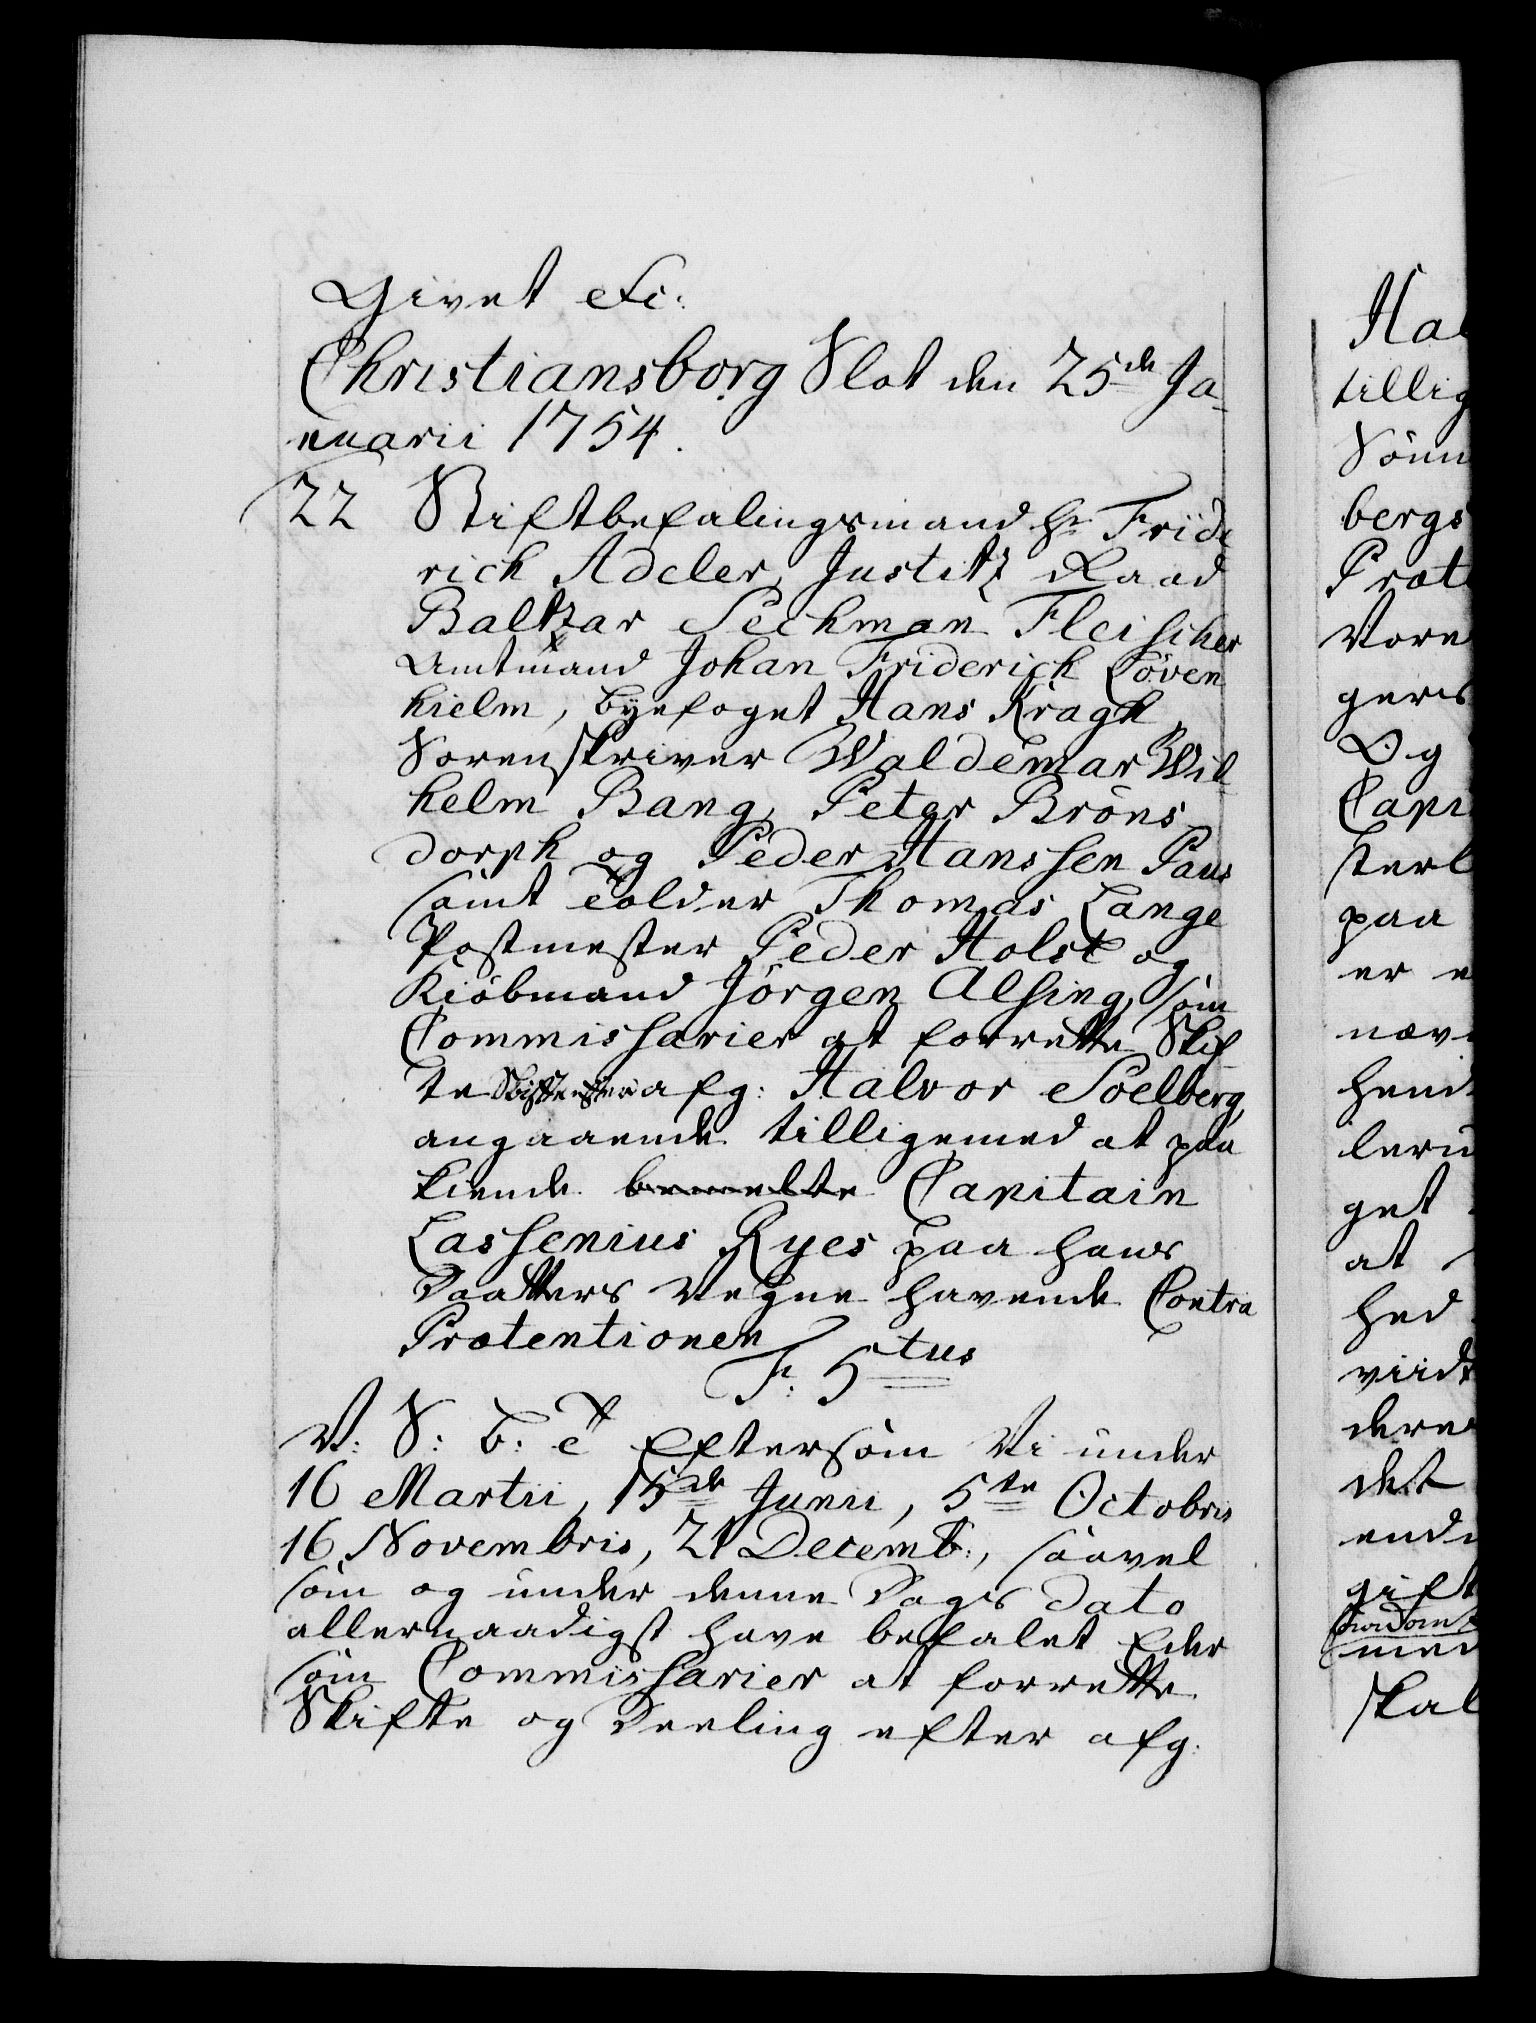 Givet &c:
Christiansborg Slot den 25de Ja-
nuarii 1754.
22 Stiftbefalingsmand Hr Fride
rich Adeler, Justitz Raad
Baltzar Seckman Fleischer
Amtmand Johan Friderich Löven
hielm, Byefoget Hans Kragh,
Sorenskriver Waldemar Wil-
helm Bang, Peter Bröns
dorph og Peder Hanssen Paus
samt Tolder Thomas Lange
Postmester Peder Holst og
Kiöbmand Jörgen Alsing, som
Commissarier at forrette Skif
te efter afg: Halvor Soelberg,
angaaende tilligemed at paa
kiende bemelte Capitain
Lassenius Ryes paa hans
Daatters Vegne havende Contra
Prætentioner
F: 5tus
V: S: b: e Eftersom Vi under
16 Martii, 15de Junii, 5te Octobris
16 Novembris, 21 Decemb:, saavel
som og under denne Dags Dato
allernaadigst have befalet Eder
som Commissarier at forrette
Skifte og Deeling efter afg:
Hal
tillig
Sönn
bergs
Præt
Vore
geris
Og
Capi
sterl
paa
er e
næv
hend
leru
get
at
hed
viid
dere
det
end
gift
med
skal